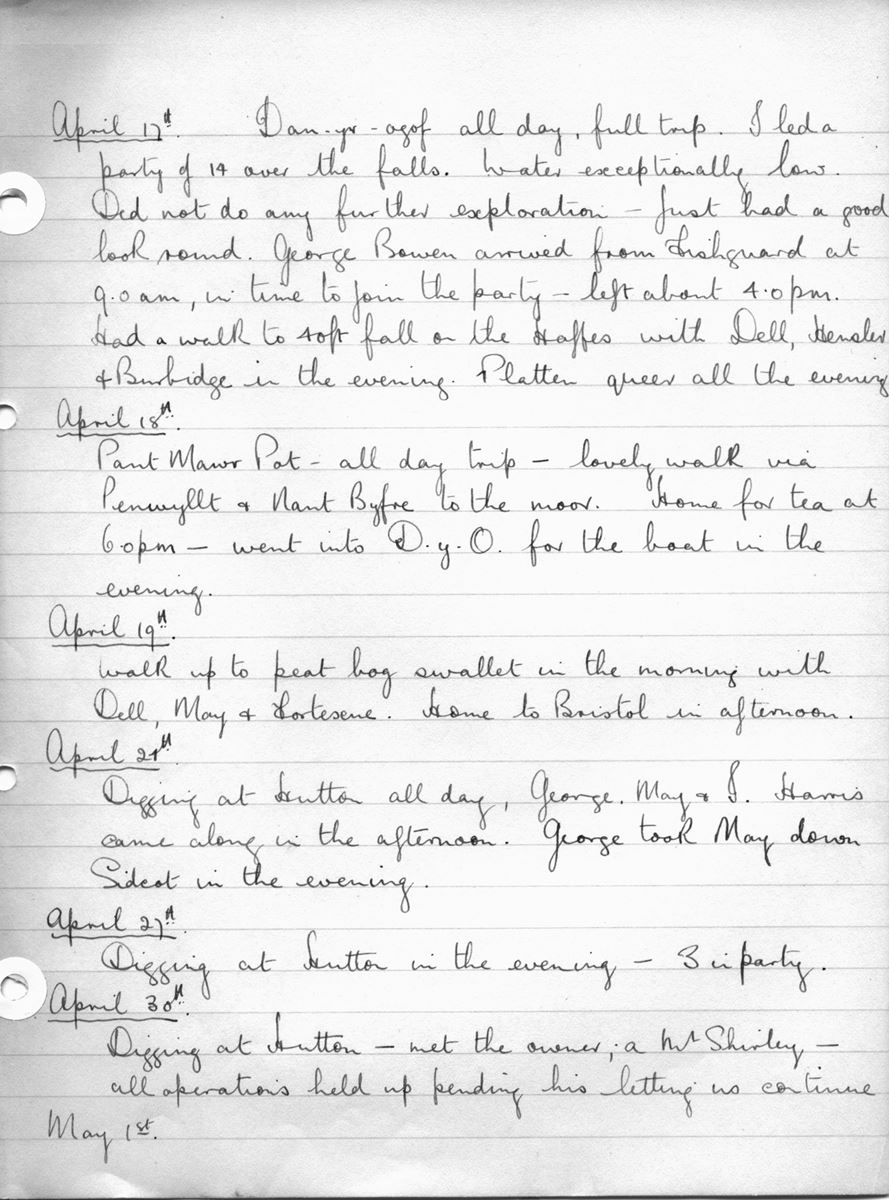 April 17th. Dan-yr-ogof all day, full trip. I led a
party of 14 over the falls. Water exceptionally low.
Did not do any further exploration – just had a good
look round. George Bowen arrived from Fishguard at
9.0 am, in time to join the party – left about 4.0 pm.
Had a walk to 40ft fall on the Haffes with Dell, Hensler
& Burbidge in the evening. Platten queer all the evening
April 18th.
Pant Mawr Pot – all day trip – lovely walk via
Penwyllt & Nant Byfre to the moor. Home for tea at
6.0pm – went into D.y.O. for the boat in the
evening.
April 19th.
Walk up to peat bog swallet in the morning with
Dell, May & Fortescue. Home to Bristol in afternoon.
April 24th.
Digging at Hutton all day, George, May & J. Harris
came along in the afternoon. George took May down
Sidcot in the evening.
April 27th.
Digging at Hutton in the evening – 3 in party.
April 30th.
Digging at Hutton – met the owner, a Mr Shirley –
all operations held up pending his letting us continue
May 1st.